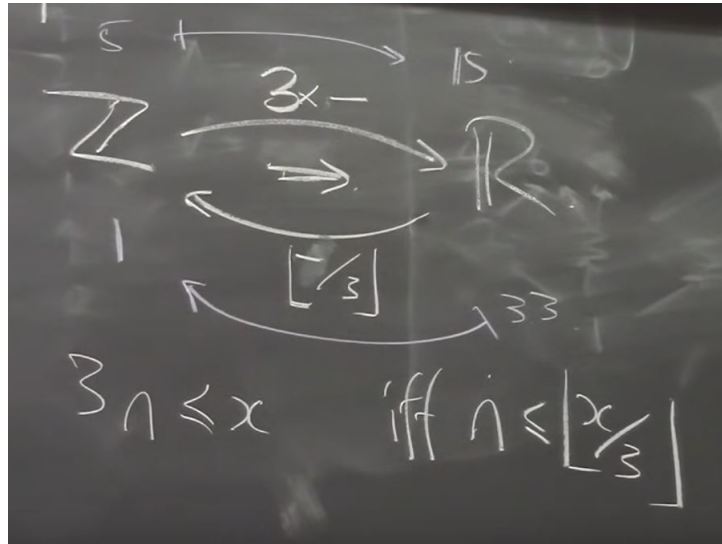 5 ↦ 15
3×–
ℤ ⇒ ℝ
⌊–/3⌋
1 3.3
3n ≤ x iff n ≤ ⌊x/3⌋